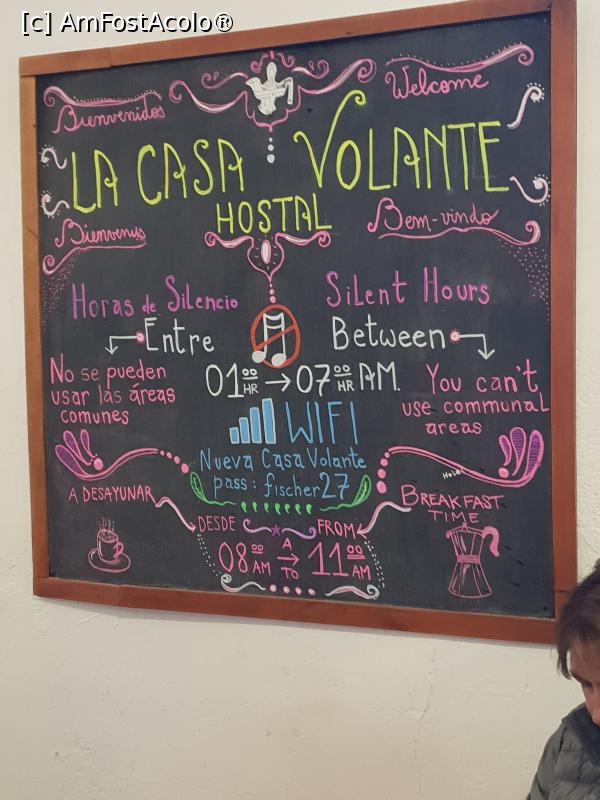 [c] AmFostAcolo®
Bienvenidos
Welcome
LA CASA VOLANTE
HOSTAL
Bienvenus
Bem-vindo
Horas de Silencio
Silent Hours
Entre
Between
No se pueden
usar las áreas
comunes
01ºº HR → 07ºº HR AM.
You can't
use communal
areas
WIFI
Nueva Casa Volante
pass: fischer27
Hola!
A DESAYUNAR
BREAKFAST
TIME
DESDE
FROM
08ºº AM
A
→
TO
11ºº AM